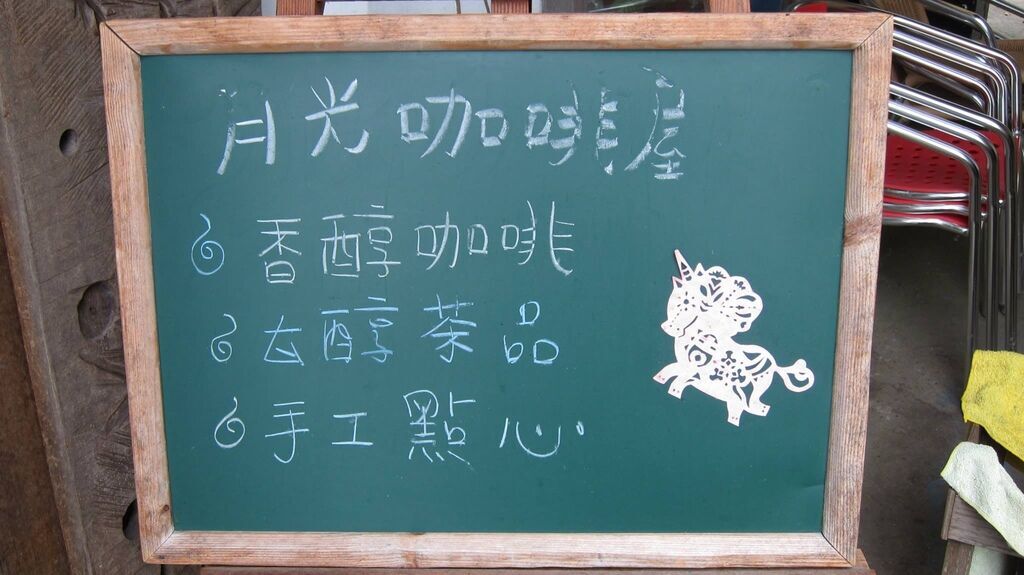 月光咖啡屋
香醇咖啡
去醇茶品
手工點心